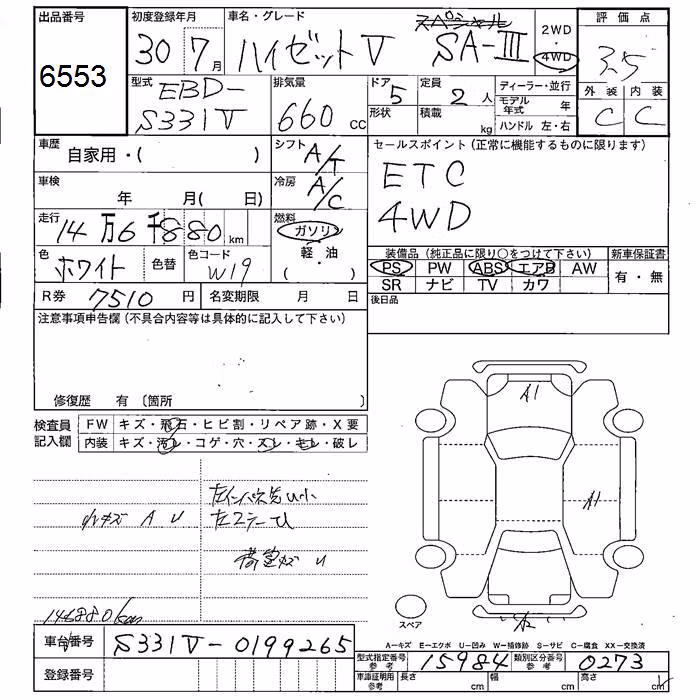 出品番号
6553
初度登録年月
30年7月
車名・グレード
スペシャル
ハイゼットV SA-III
2WD
4WD
評価点
3.5
外装 内装
C C
型式
EBD-
S331V
排気量
660 cc
ドア 5
形状
定員 2人
積載 kg
ディーラー・並行
モデル年式 年
ハンドル 左・右
車歴
自家用・( )
シフト A/T
セールスポイント(正常に機能するものに限ります)
ETC
4WD
車検
年 月( 日)
冷房 A/C
走行
14万6千880km
燃料
ガソリン
軽・油
( )
色
ホワイト
色替
色コード
W19
装備品(純正品に限り○をつけて下さい)
新車保証書
PS PW ABS エアB AW
有・無
SR ナビ TV カワ
R券 7510円
名変期限 月 日
後日品
注意事項申告欄(不具合内容等は具体的に記入して下さい)
修復歴 有〔箇所
検査員記入欄
FW キズ・飛石・ヒビ割・リペア跡・X要
内装 キズ・汚レ・コゲ・穴・スレ・モレ・破レ
小キズ A U
左インパネ先U小
荷室キズ U
146880km
A1
A1
スペア
車台番号
S331V-0199265
A-キズ E-エクボ U-凹み W-補修跡 S-サビ C-腐食 XX-交換済
型式指定番号参考
15984
類別区分番号参考
0273
登録番号
車庫証明用参考
長さ cm
幅 cm
高さ cm